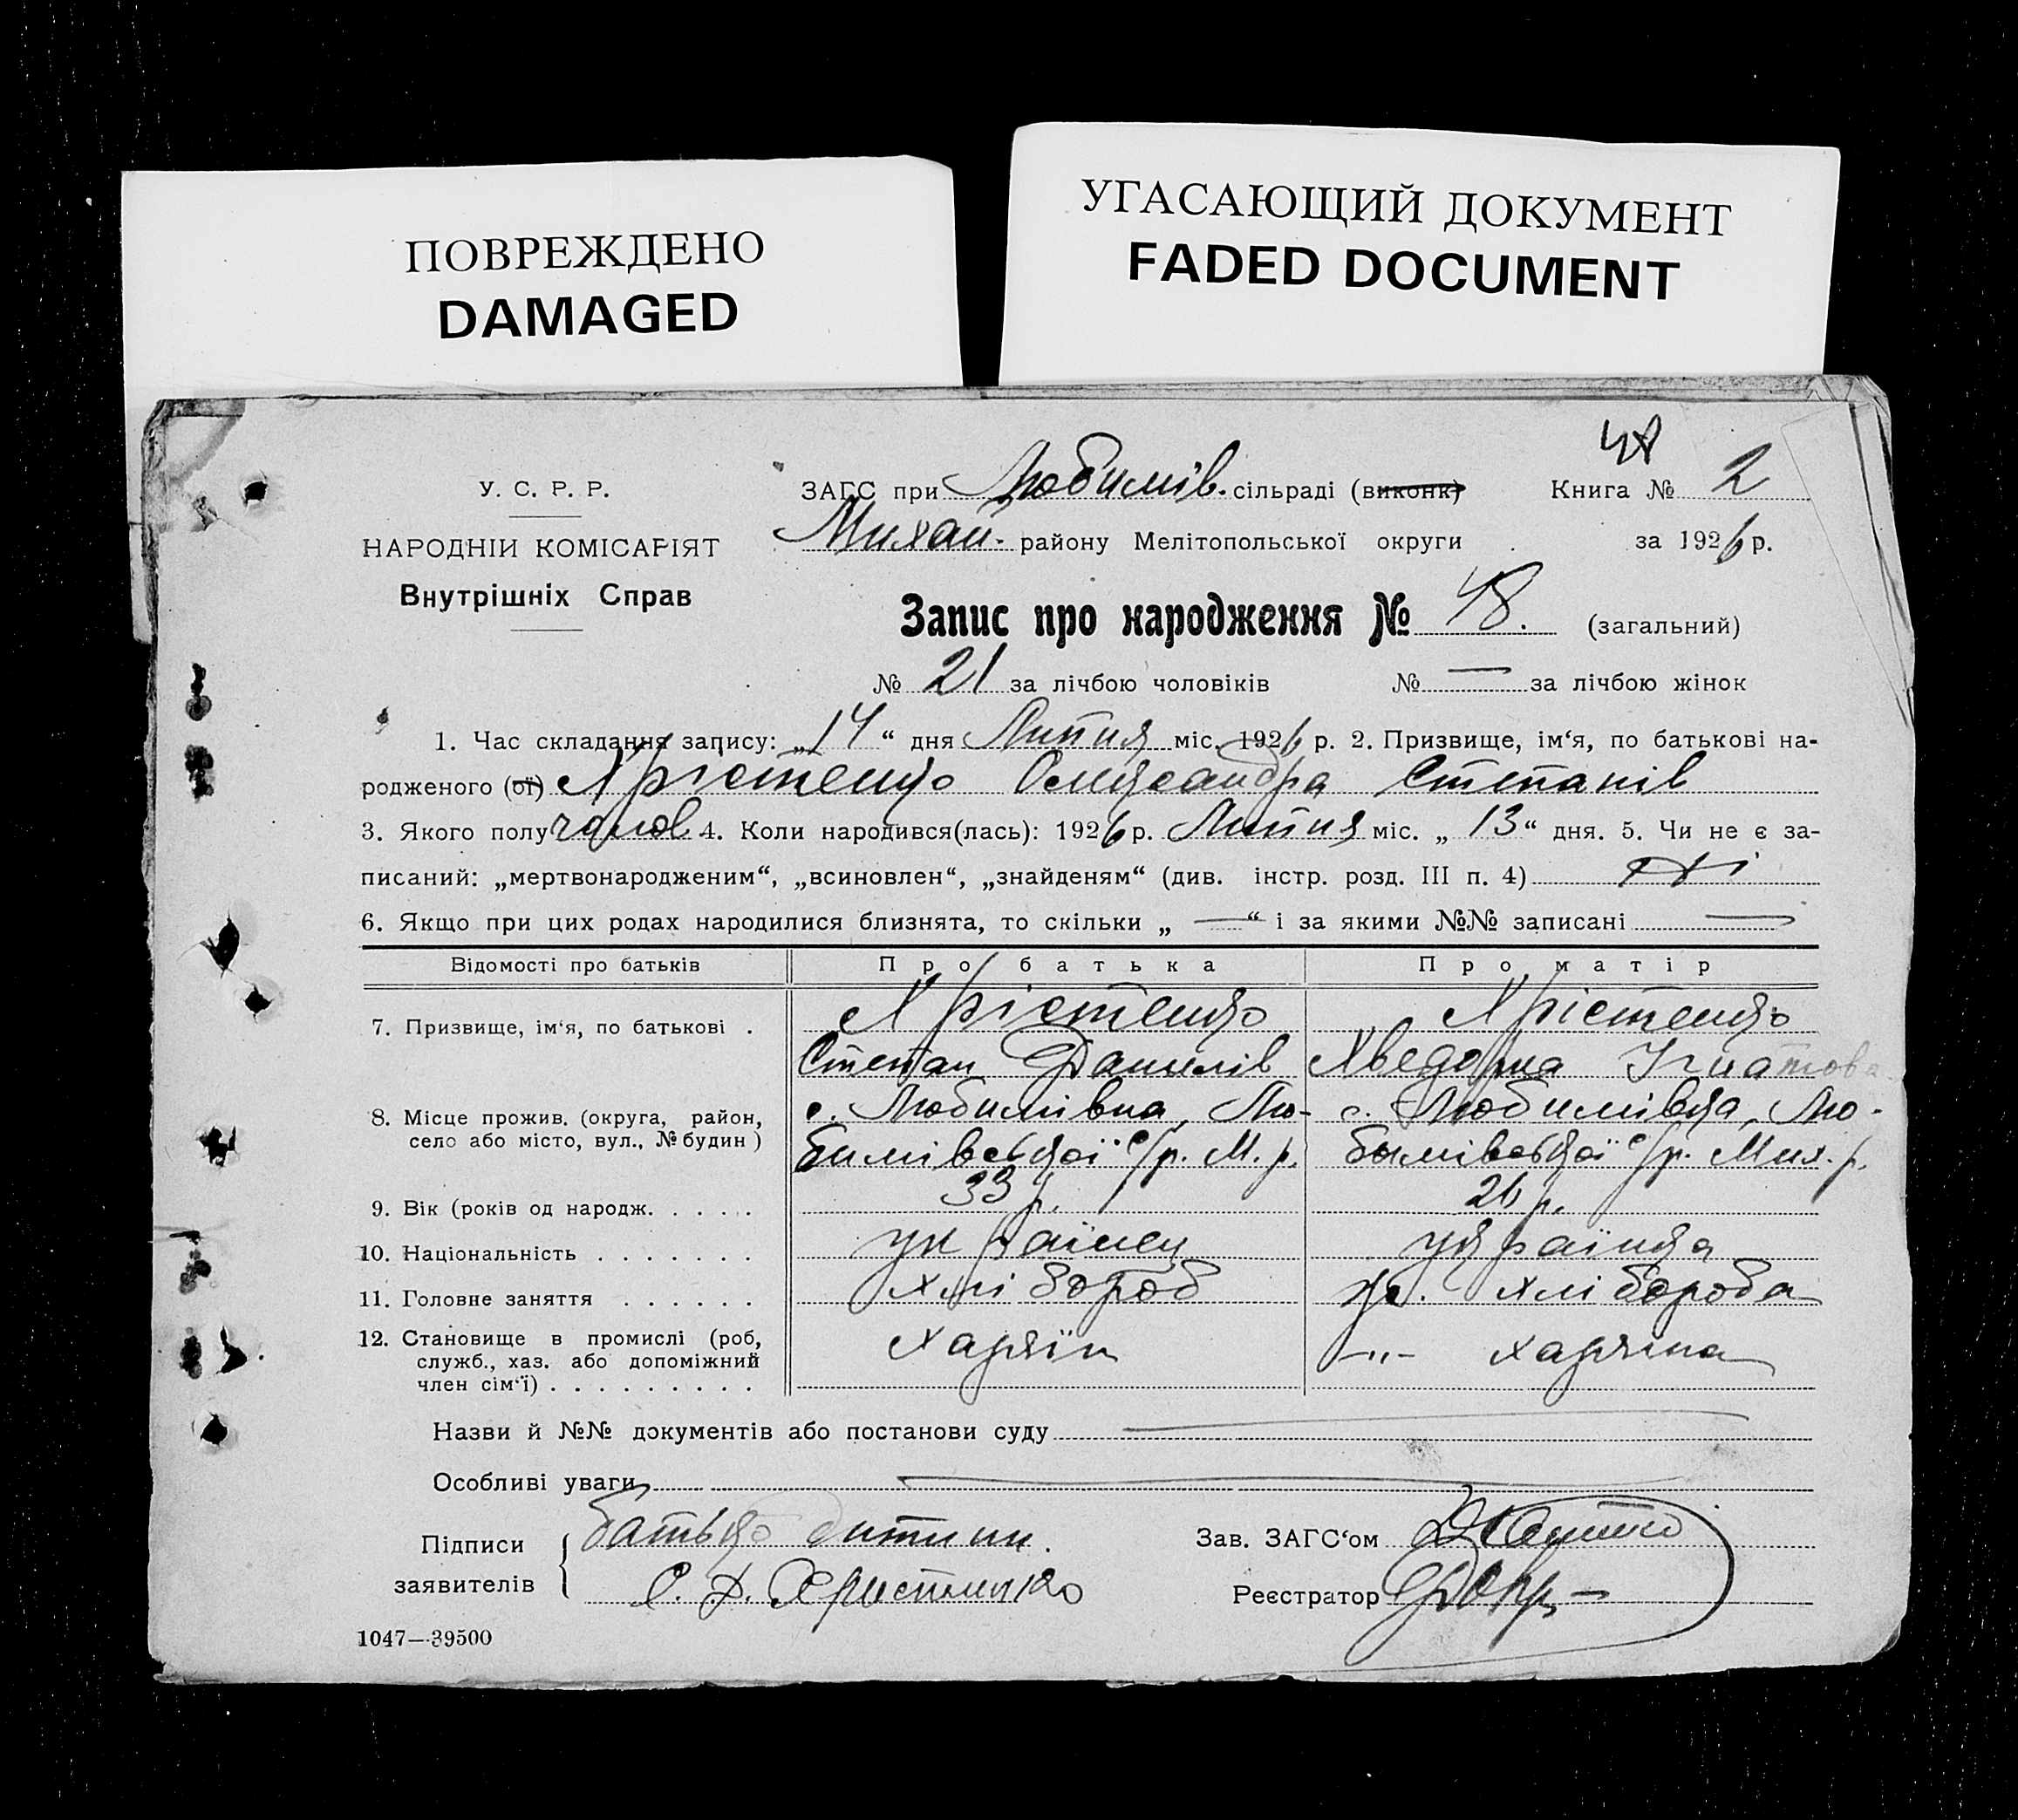 ПОВРЕЖДЕНО
DAMAGED
УГАСАЮЩИЙ ДОКУМЕНТ
FADED DOCUMENT
48
У. С. Р. Р.
НАРОДНІЙ КОМІСАРІЯТ
Внутрішніх Справ
ЗАГС при Любимів. сільраді (виконк) Книга № 2
Михай. району Мелітопольської округи за 1926 р.
Запис про народження № 48. (загальний)
№ 21 за лічбою чоловіків № — за лічбою жінок
1. Час складання запису: „14“ дня Липня міс. 1926 р. 2. Призвище, ім‘я, по батькові на-
родженого (ої) Хрістенко Олександра Степанів
3. Якого полу чолов. 4. Коли народився(лась): 1926 р. Липня міс. „13“ дня. 5. Чи не є за-
писаний: „мертвонародженим“, „всиновлен“, „знайденям“ (див. інстр. розд. III п. 4) Ні
6. Якщо при цих родах народилися близнята, то скільки „ — “ і за якими №№ записані —
Відомості про батьків Про батька Про матір
7. Призвище, ім‘я, по батькові . Хрістенко Хрістенко
Степан Данилів Хведорка Ігнатова
8. Місце прожив. (округа, район, село або місто, вул., № будин) с. Любимівка, Лю- с. Любимівка, Лю-
бимівської с/р. М. р. бимівської с/р. Мих. р.
9. Вік (років од народж. . . . . 33 р. 26 р.
10. Національність . . . . . . . українец українка
11. Головне заняття . . . . . . хлібороб хлібороба
12. Становище в промислі (роб, служб., хаз. або допоміжний член сім‘ї) . . . . . . . . . хазяїн –"– хазяїна
Назви й №№ документів або постанови суду —
Особливі уваги —
Підписи заявителів { батько дитини.
С. Д. Христенко
Зав. ЗАГС‘ом
Реєстратор
1047—39500